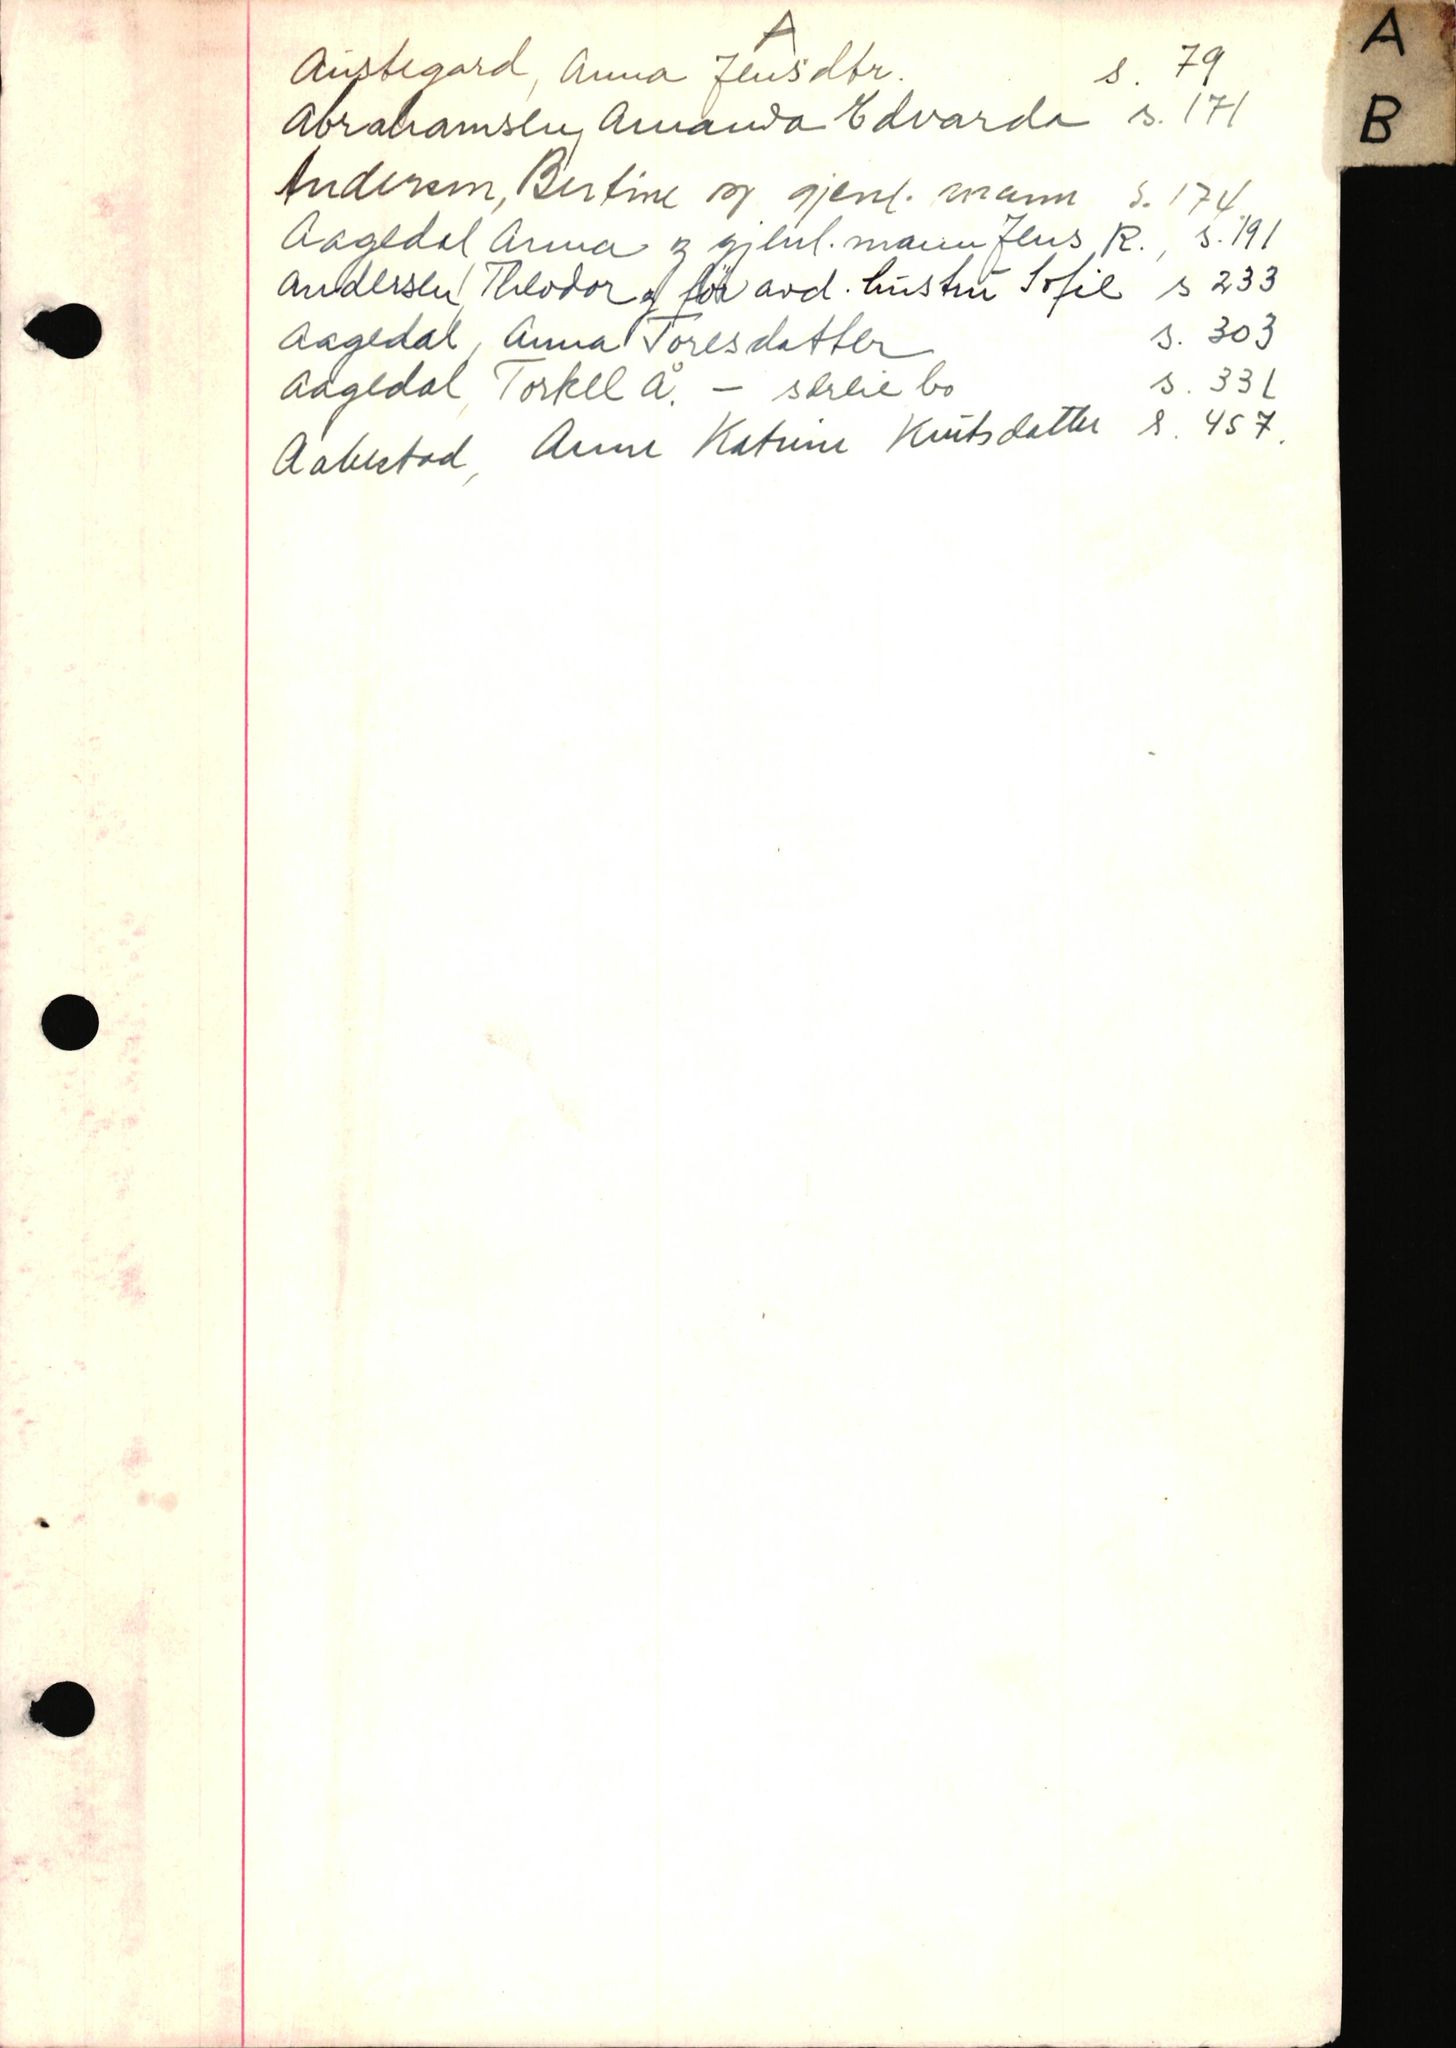 A
Austegard, Anna Jensdtr. s. 79
Abrahamsen, Amanda Edvarda s. 171
Andersen, Bertine og gjenl. mann s. 174
Aagedal Anna og gjenl. mann Jens R., s. 191
Andersen, Theodor og før avd. hustru Sofie s 233
Aagedal, Anna Toresdatter s. 303
Aagedal, Torkel Å. – særeie bo s. 331
Aabestad, Anne Katrine Knutsdatter s. 457.
A
B